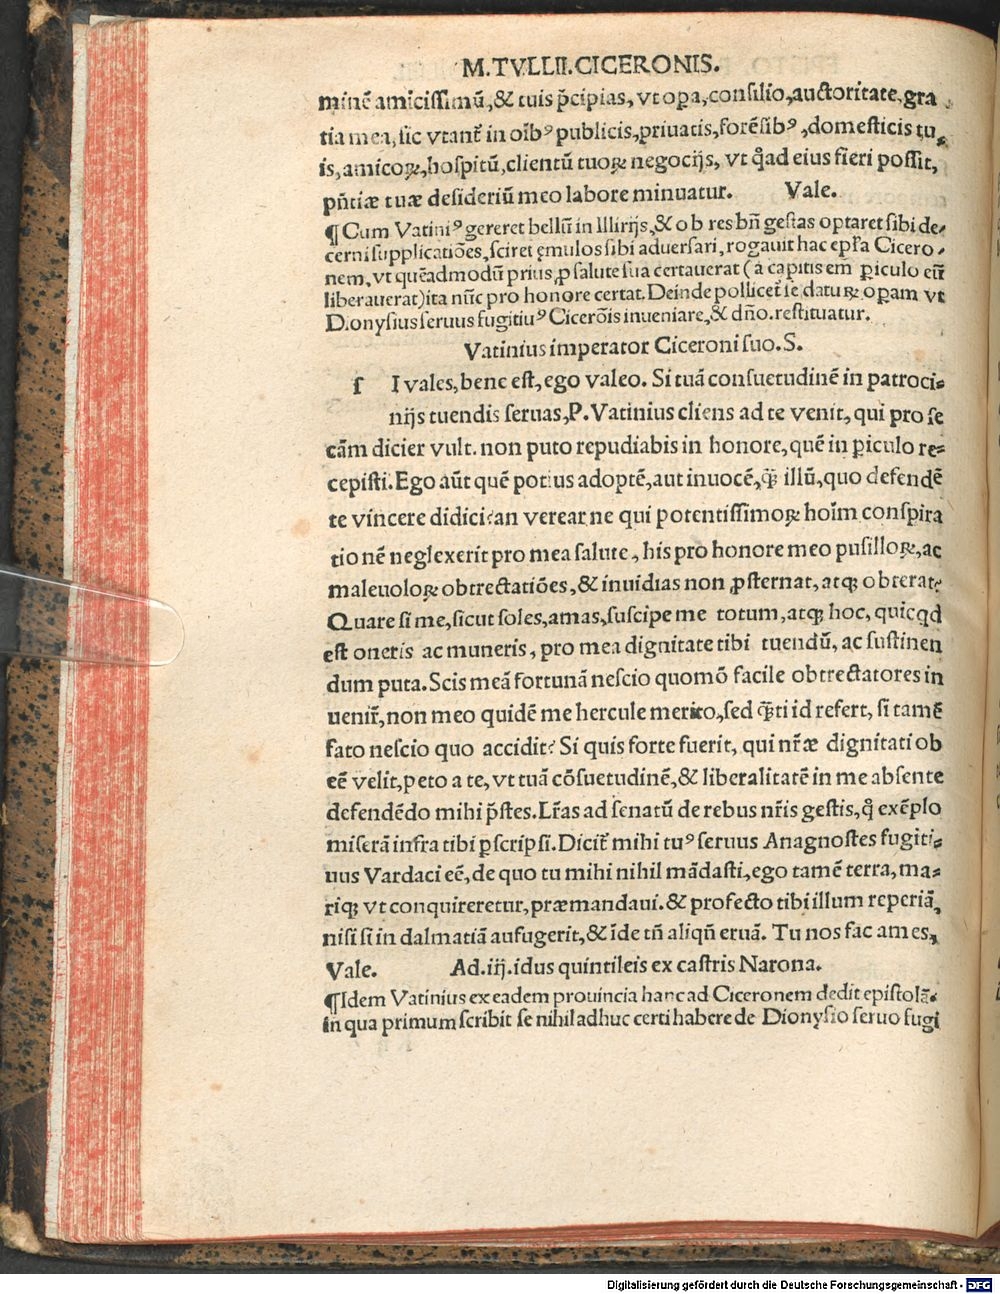 M.TVLLII.CICERONIS.
minē amicissimū,& tuis p̄cipias, vt oꝑa,consilio,auctoritate,gra
tia mea, sic vtant᷑ in oībꝰ publicis,priuatis,forēsibꝰ,domesticis tu,
is,amicoꝝ,hospitū,clientū tuoꝝ negocijs, vt q̊ad eius fieri possit,
pn̄tiæ tuæ desideriū meo labore minuatur. Vale.
¶Cum Vatiniꝰ gereret bellū in Illirijs,&ob res bn̄ gestas optaret sibi de⸗
cerni supplicatiōes,sciret ęmulos sibi aduersari, rogauit hac epr̄a Cicero⸗
nem,vt quēadmodū prius,ꝓ salute sua certauerat (a capitis em̄ ꝑiculo eū
liberauerat)ita nūc pro honore certat.Deinde pollicet᷑ se datuꝝ oꝑam vt
Dionysius seruus fugitiuꝰ Cicerōis inueniare,& dn̄o.restituatur.
Vatinius imperator Ciceroni suo.S.
ſ I vales,bene est,ego valeo. Si tuā consuetudinē in patroci⸗
nijs tuendis seruas,P.Vatinius cliens ad te venit, qui pro se
cām dicier vult. non puto repudiabis in honore,quē in ꝑiculo re⸗
cepisti.Ego aūt quē potius adoptē,aut inuocē,q̄ꝫ illū,quo defendē
te vincere didici?an verear ne qui potentissimoꝝ hoīm conspira
tionē neglexerit pro mea salute, his pro honore meo pusilloꝝ,ac
maleuoloꝝ obtrectatiōes,& inuidias non ꝓsternat,atqꝫ obterat?
Quare si me,sicut soles,amas,suscipe me totum,atqꝫ hoc, quicqd
est oneris ac muneris, pro mea dignitate tibi tuendū, ac sustinen
dum puta.Scis meā fortunā nescio quomō facile obtrectatores in
uenir̄,non meo quidē me hercule merito,sed q̄ti id refert, si tamē
fato nescio quo accidit? Si quis forte fuerit, qui nr̄æ dignitati ob
eē velit,peto a te, vt tuā cōsuetudinē,& liberalitatē in me absente
defendēdo mihi p̄stes.Lr̄as ad senatū de rebus nr̄is gestis,q̊ exēplo
miserā infra tibi ꝑscripsi.Dicit᷑ mihi tuꝰ seruus Anagnostes fugiti⸗
uus Vardaci eē,de quo tu mihi nihil mādasti,ego tamē terra,ma⸗
riqꝫ vt conquireretur,præmandaui.& profecto tibi illum reperiā,
nisi si in dalmatiā aufugerit,& īde tn̄ aliqn̄ eruā. Tu nos fac ames,
Vale. Ad.iij.idus quintileis ex castris Narona.
¶Idem Vatinius ex eadem prouincia hanc ad Ciceronem dedit epistolā⸗
in qua primum scribit se nihil adhuc certi habere de Dionysio seruo fugi
Digitalisierung gefördert durch die Deutsche Forschungsgemeinschaft - DFG